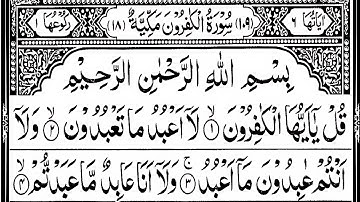 اٰیَاتُهَا ٦ (١٠٩) سُوْرَةُ الْكٰفِرُوْنَ مَكِّيَّةٌ (١٨) رُكُوْعُهَا ١
بِسْمِ اللّٰهِ الرَّحْمٰنِ الرَّحِيْمِ
قُلْ يٰٓاَيُّهَا الْكٰفِرُوْنَ ۙ﴿١﴾ لَاۤ اَعْبُدُ مَا تَعْبُدُوْنَ ۙ﴿٢﴾ وَلَاۤ
اَنْتُمْ عٰبِدُوْنَ مَاۤ اَعْبُدُ ۚ﴿٣﴾ وَلَاۤ اَنَا عَابِدٌ مَّا عَبَدْتُّمْ ۙ﴿٤﴾